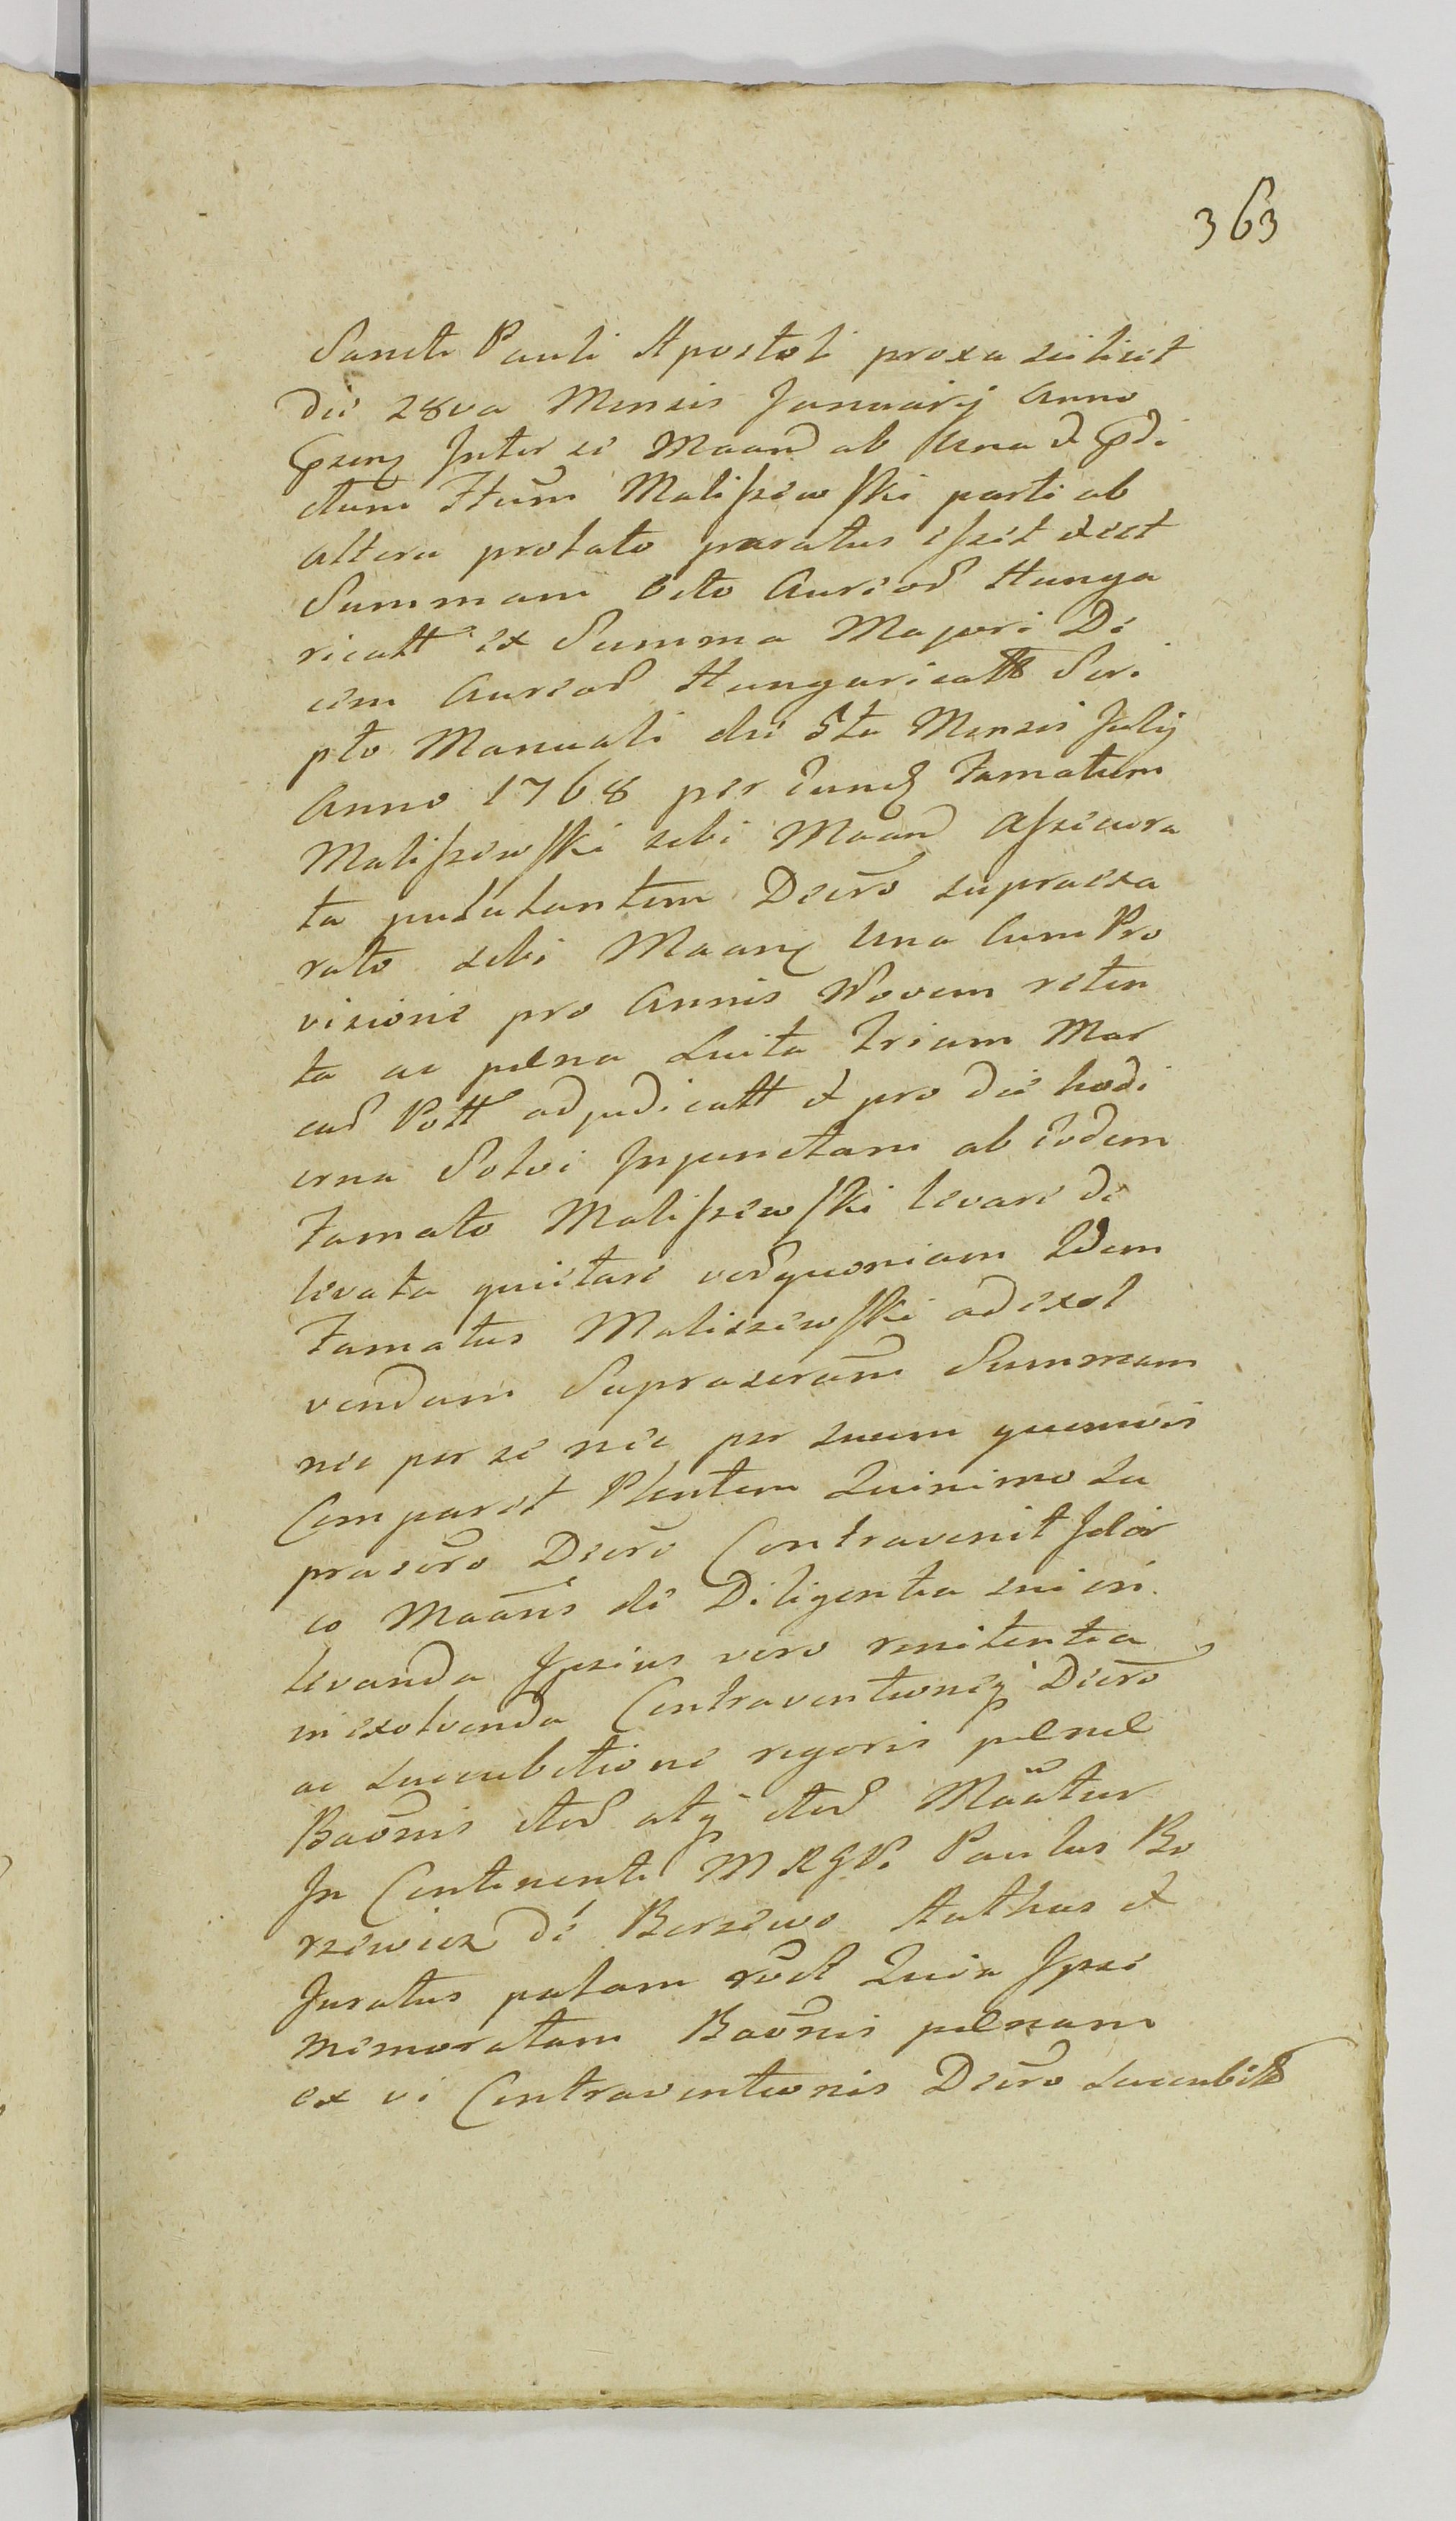 363
Sancti Pauli Apostoli proxa scilicet
die 28va Mensis Januarij Anno
Inter se Maand ab Una et
ctum Ftum Maliszewski parti ab
altera prolato paratus esset et est
Summam Octo Aureor Hunga
ricatt ex Summa Majori De
cem Aureor Hungaricall Scri
pto Manuali die 5ta Mensis Julij
Anno 1768 per eund Famatum
Maliszewski sibi Maand Assecura
ta Decro supraexa
rato sibi Una Cum Pro
visione pro Annis Novem reten
ta ac pæna Luita Trium Mar
car Poll adjudicatt et pro die hodi
erna Solvi Injunctam ab eodem
Famato Maliszewski levare de
levata quietare verquoniam Idem
Famatus Maliszewski ad exol
vendam Supraxeram Summam
nec per se nec per suum quemvis
Comparet Plentem Quinimo Su
praxero Decro Contravenit Ideir
co Maans de Diligentia sui in
levanda Ipsius vero renitentia
in exolvenda Contraventioneq Decro
ac succubitione regoris pænæ
Baonis iter atq iter Maatur
In Continenti MRGP. Paulus Bo
rzewicz de Borzewo Authus et
Juratus palam Quia Ipse
memoratam Baonis pænam
ex vi Contraventionis Decro succubit